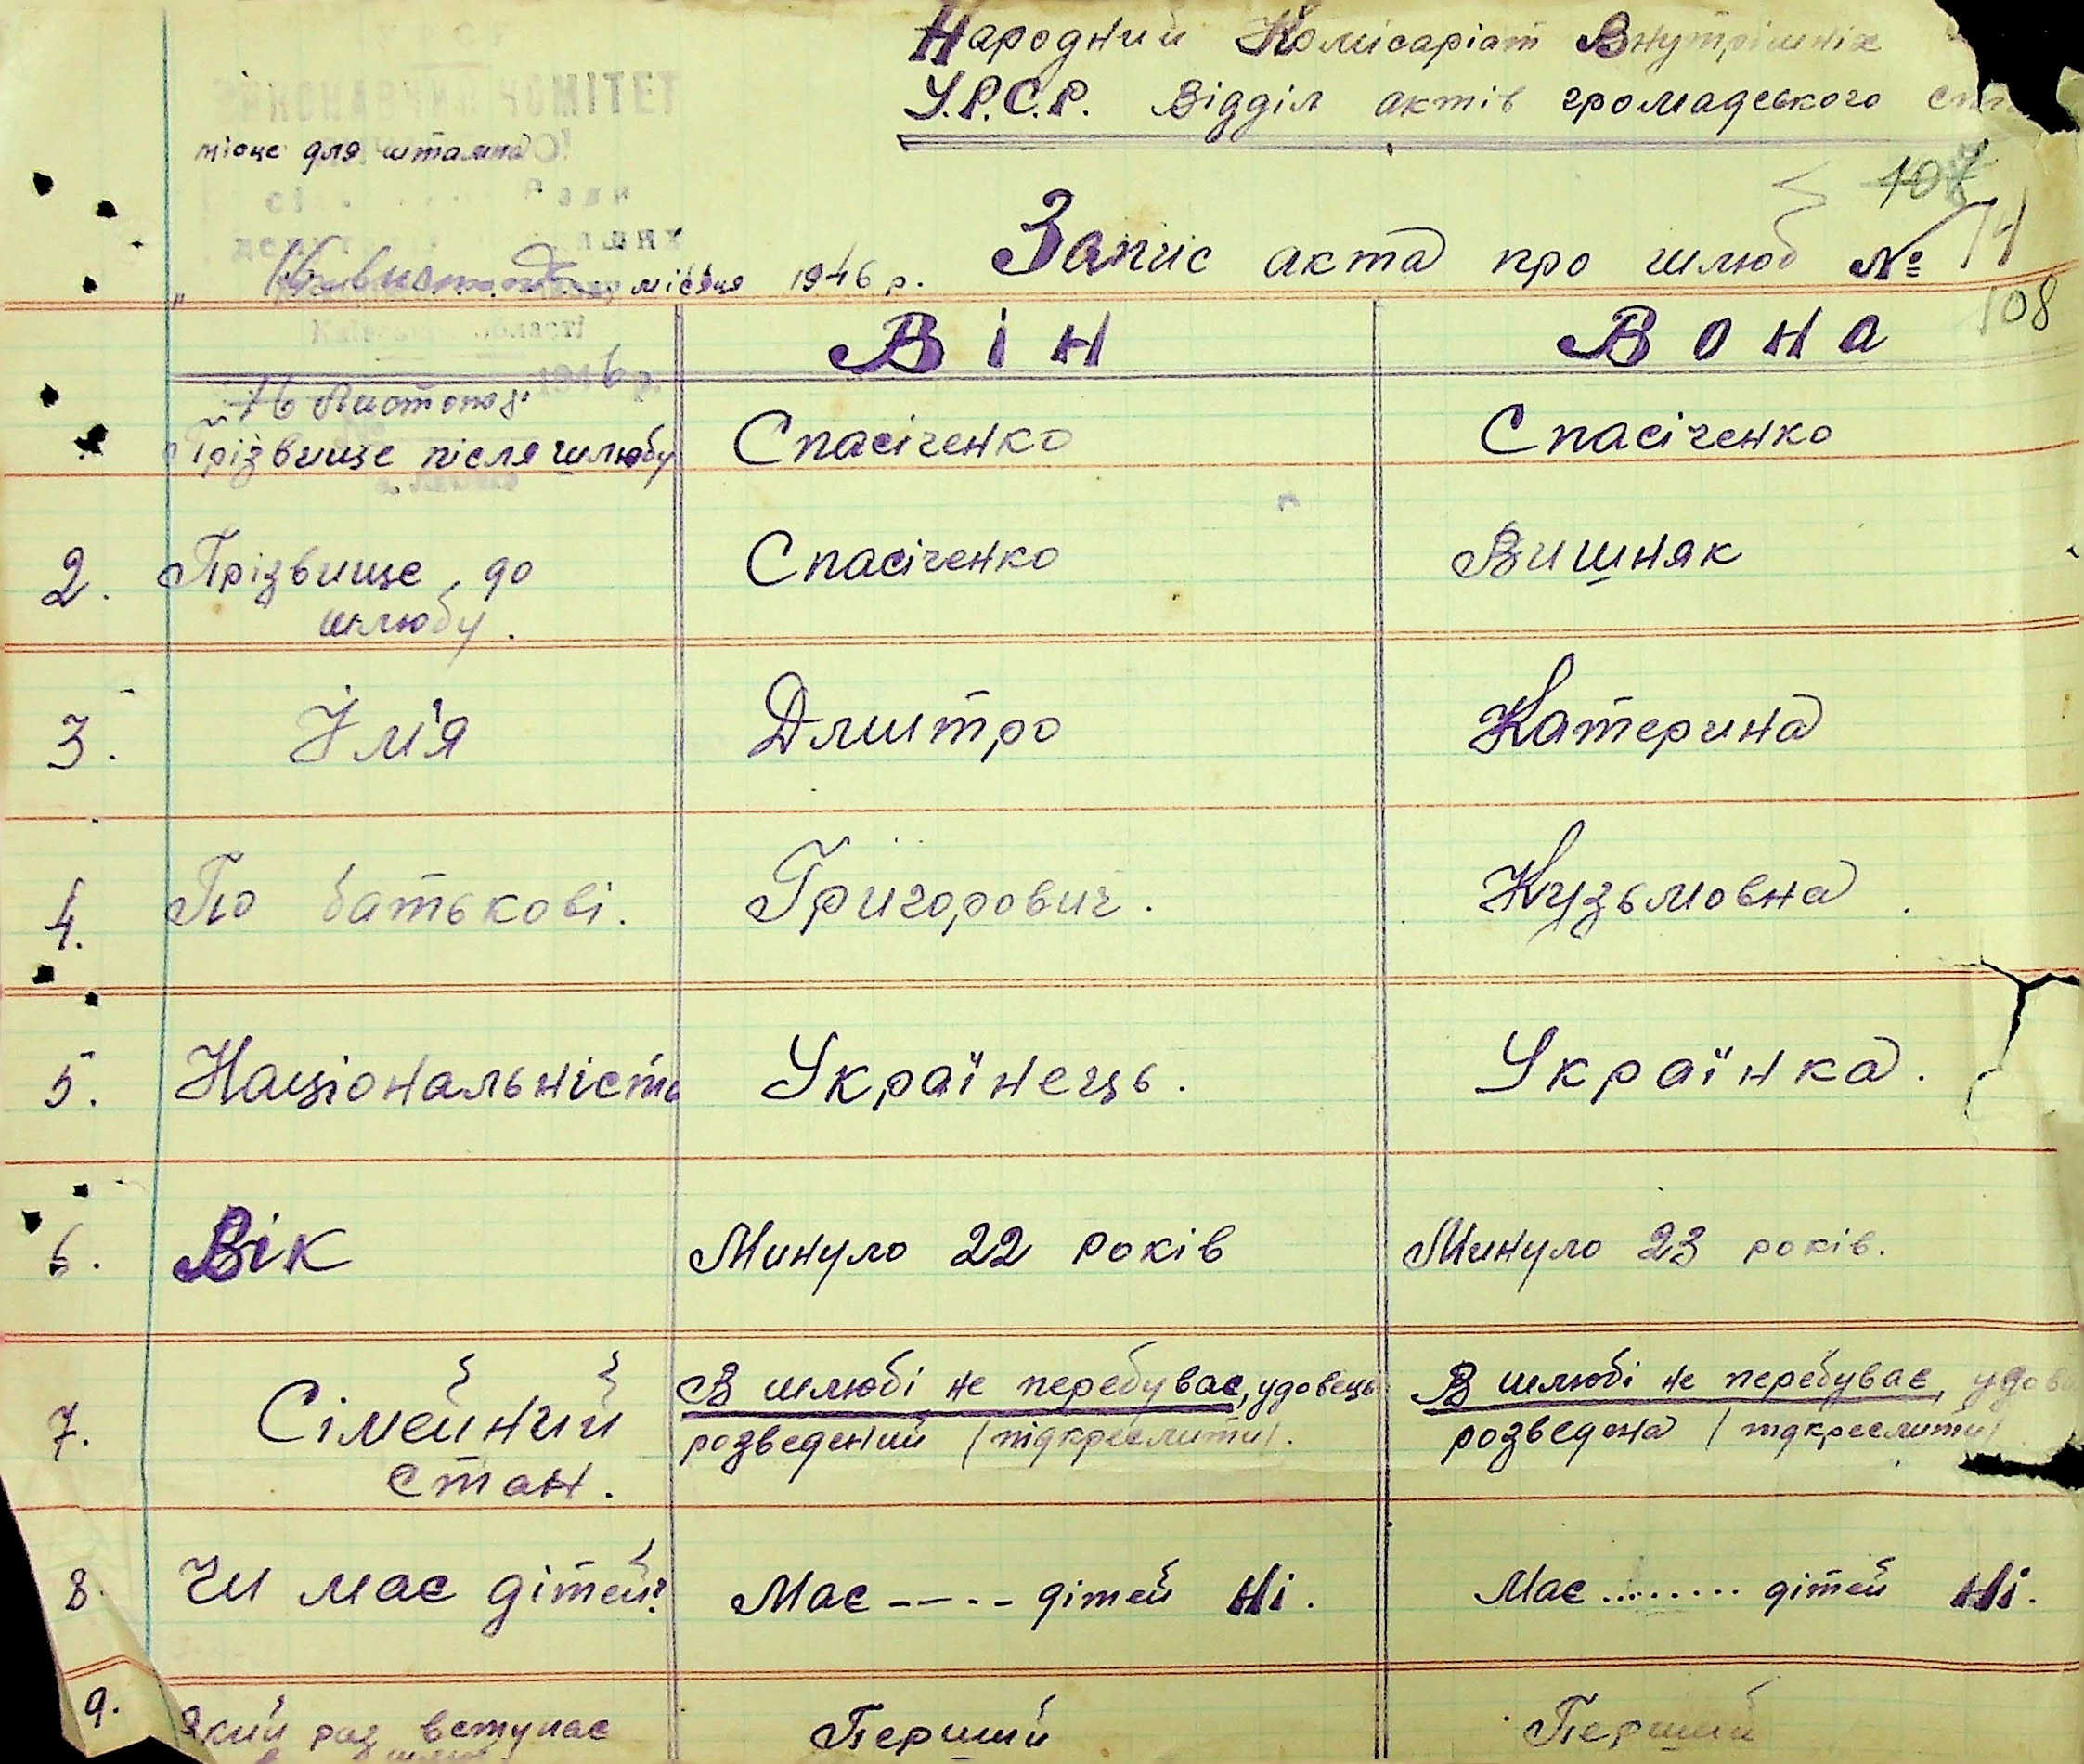 Народний Комісаріат Внутрішніх
У.Р.С.Р. Відділ актів громадського
ВИКОНАВЧИЙ КОМІТЕТ
місце для штампа
Ради
107
Запис акта про шлюб № 74
місяця 1946 р.
108
Київської області
Він Вона
16 Листопад 1946 р.
Прізвище після шлюбу Спасіченко Спасіченко
2. Прізвище до Спасіченко Вишняк
шлюбу.
3. Їм'я Дмитро Катерина
4. По батькові. Григорович. Кузьмовна
5. Національність Українець. Українка.
6. Вік Минуло 22 років Минуло 23 років.
7. Сімейний В шлюбі не перебуває, удовець В шлюбі не перебуває,
стан. розведений /підкреслити/. розведена /підкреслити/
8. Чи має дітей? Має ---- дітей Ні. Має ........ дітей Ні.
9. Який раз вступає Перший Перший